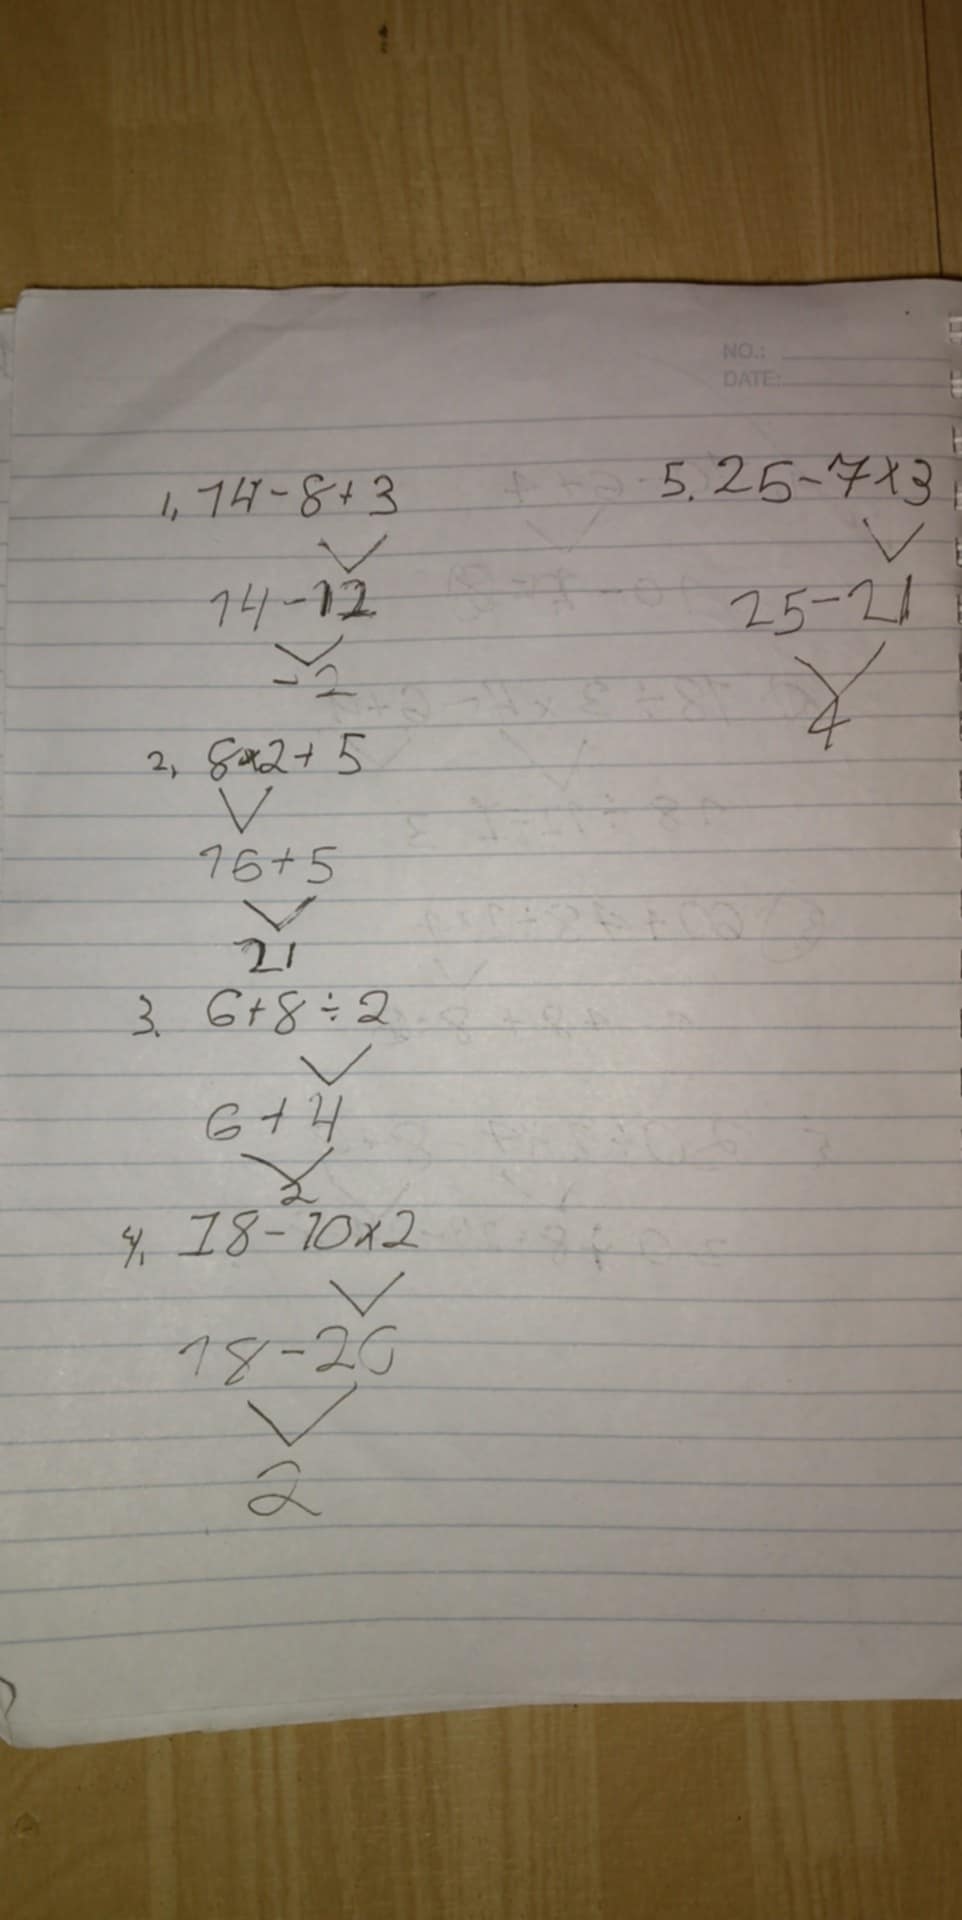 NO.:
DATE:
1, 14-8+3
14-12
-2
2, 8x2+5
16+5
21
3. 6+8÷2
6+4
2
4, 18-10x2
18-20
2
5. 25-7x3
25-21
4